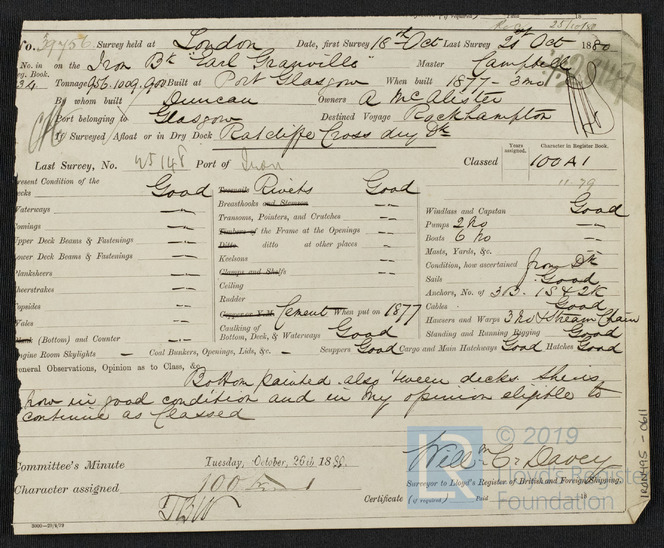 Recd 25/10/80
No. 39756 Survey held at London Date, first Survey 18th Oct Last Survey 21st Oct 1880
No. in on the Iron Bk "Earl Granville" Master Campbell
Reg. Book.
34 Tonnage 956. 1009. 900 Built at Port Glasgow When built 1877 - 3mo
By whom built Duncan Owners A McAlister
Port belonging to Glasgow Destined Voyage Rockhampton
If Surveyed Afloat or in Dry Dock Ratcliffe Cross dry Dk
Years assigned. Character in Register Book.
Last Survey, No. 45148 Port of Iron Classed 100 A1
11-79
Present Condition of the
Decks Good Treenails Rivets Good
Waterways Breasthooks and Stemson
Comings Transoms, Pointers, and Crutches
Upper Deck Beams & Fastenings Timbers of the Frame at the Openings
Lower Deck Beams & Fastenings Ditto ditto at other places
Planksheers Keelsons
Sheerstrakes Clamps and Shelfs
Topsides Ceiling
Wales Rudder
Plank (Bottom) and Counter Copper or Y.M. Cement When put on 1877
Caulking of Bottom, Deck, & Waterways Good
Windlass and Capstan Good
Pumps 2 No
Boats 6 No
Masts, Yards, &c.
Condition, how ascertained from Dk
Sails Good
Anchors, No. of 3B. 1S & 2K
Cables Good
Hawsers and Warps 3 No & Stream Chain
Standing and Running Rigging Good
Engine Room Skylights – Coal Bunkers, Openings, Lids, &c. – Scuppers Good Cargo and Main Hatchways Good Hatches Good
General Observations, Opinion as to Class, &c.
Bottom painted also 'tween decks. She is
now in good condition and in my opinion eligible to
continue as Classed
Committee's Minute Tuesday, October, 26th 1880.
Willm C. Davey
Character assigned 100 A 1
Surveyor to Lloyd's Register of British and Foreign Shipping.
Certificate (if required) Paid 18
3000–29/4/79
© 2019
Lloyd's Register
Foundation
IRON495-0611